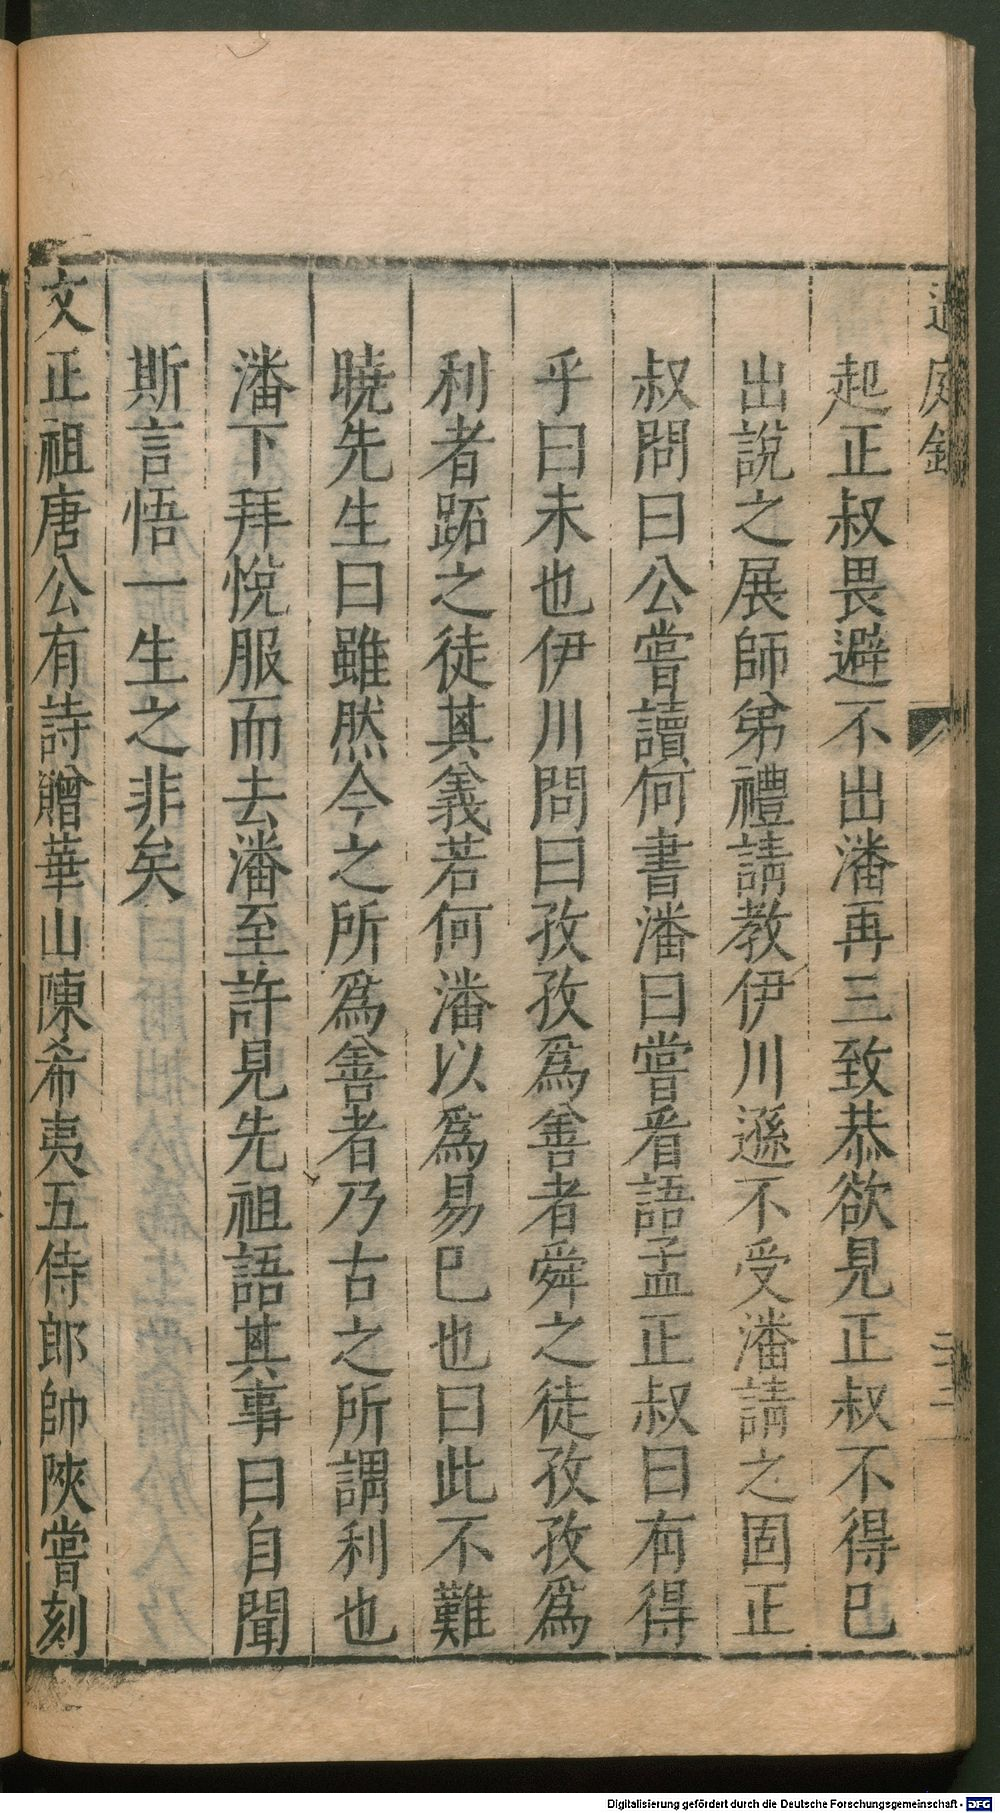 過庭錄
起正叔畏避不出潘再三致恭欲見正叔不得已
出說之展師弟禮請教伊川遜不受潘請之固正
叔問曰公嘗讀何書潘曰嘗看語孟正叔曰有得
乎曰未也伊川問曰孜孜爲善者舜之徒孜孜爲
利者跖之徒其義若何潘以爲易已也曰此不難
曉先生曰雖然今之所爲善者乃古之所謂利也
潘下拜悅服而去潘至許見先祖語其事曰自聞
斯言悟一生之非矣
文正祖唐公有詩贈華山陳希夷五侍郎帥陜嘗刻
Digitalisierung gefördert durch die Deutsche Forschungsgemeinschaft - DFG